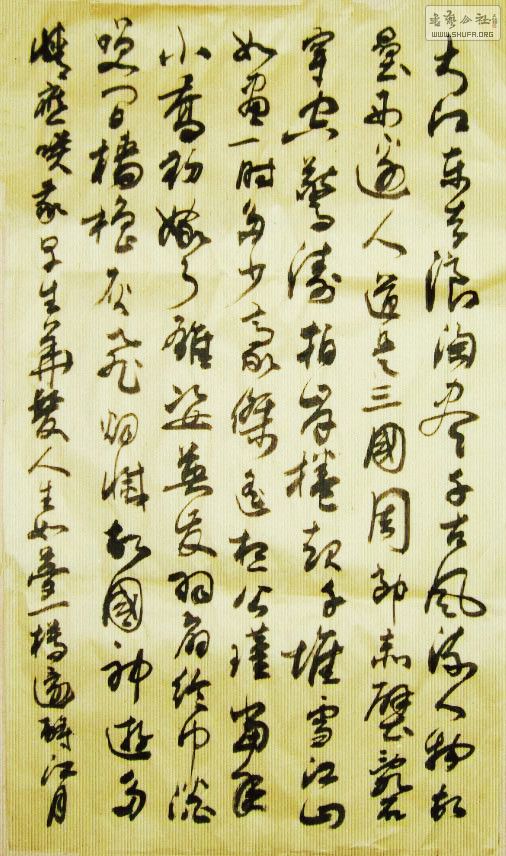 書藝公社
WWW.SHUFA.ORG
大江東去浪淘尽千古風流人物故
壘西邊人道是三國周郎赤壁亂石
穿空驚濤拍岸捲起千堆雪江山
如畫一時多少豪傑遙想公瑾當年
小喬初嫁了雄姿英发羽扇綸巾談
笑間檣櫓灰飛烟滅故國神遊多
情應笑我早生華髮人生如夢一樽還酹江月